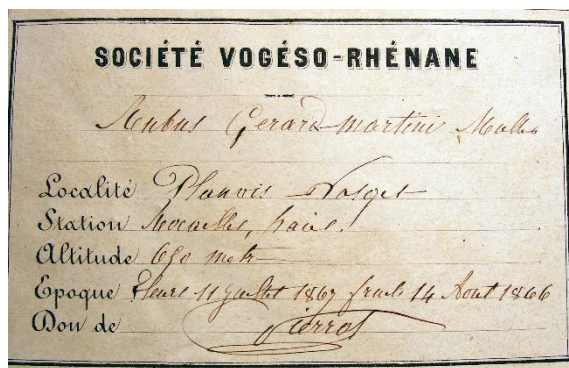 SOCIÉTÉ VOGÉSO-RHÉNANE
Rubus Gerard-martini
Localité Plainfaing Vosges
Station haies.
Altitude 650 metr
Epoque fleurs 11 juillet 1867 fruits 14 Aout 1866
Don de Pierrat